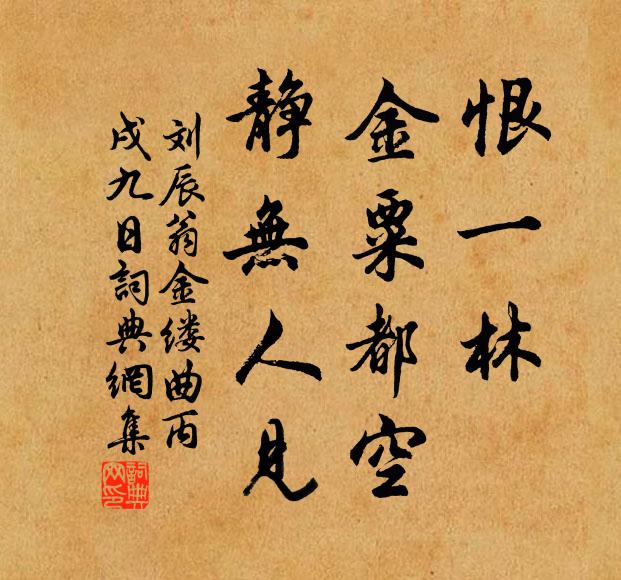 恨一林
金粟都空
静無人見
刘辰翁金缕曲丙
戌九日詞典網集
詞典
网印